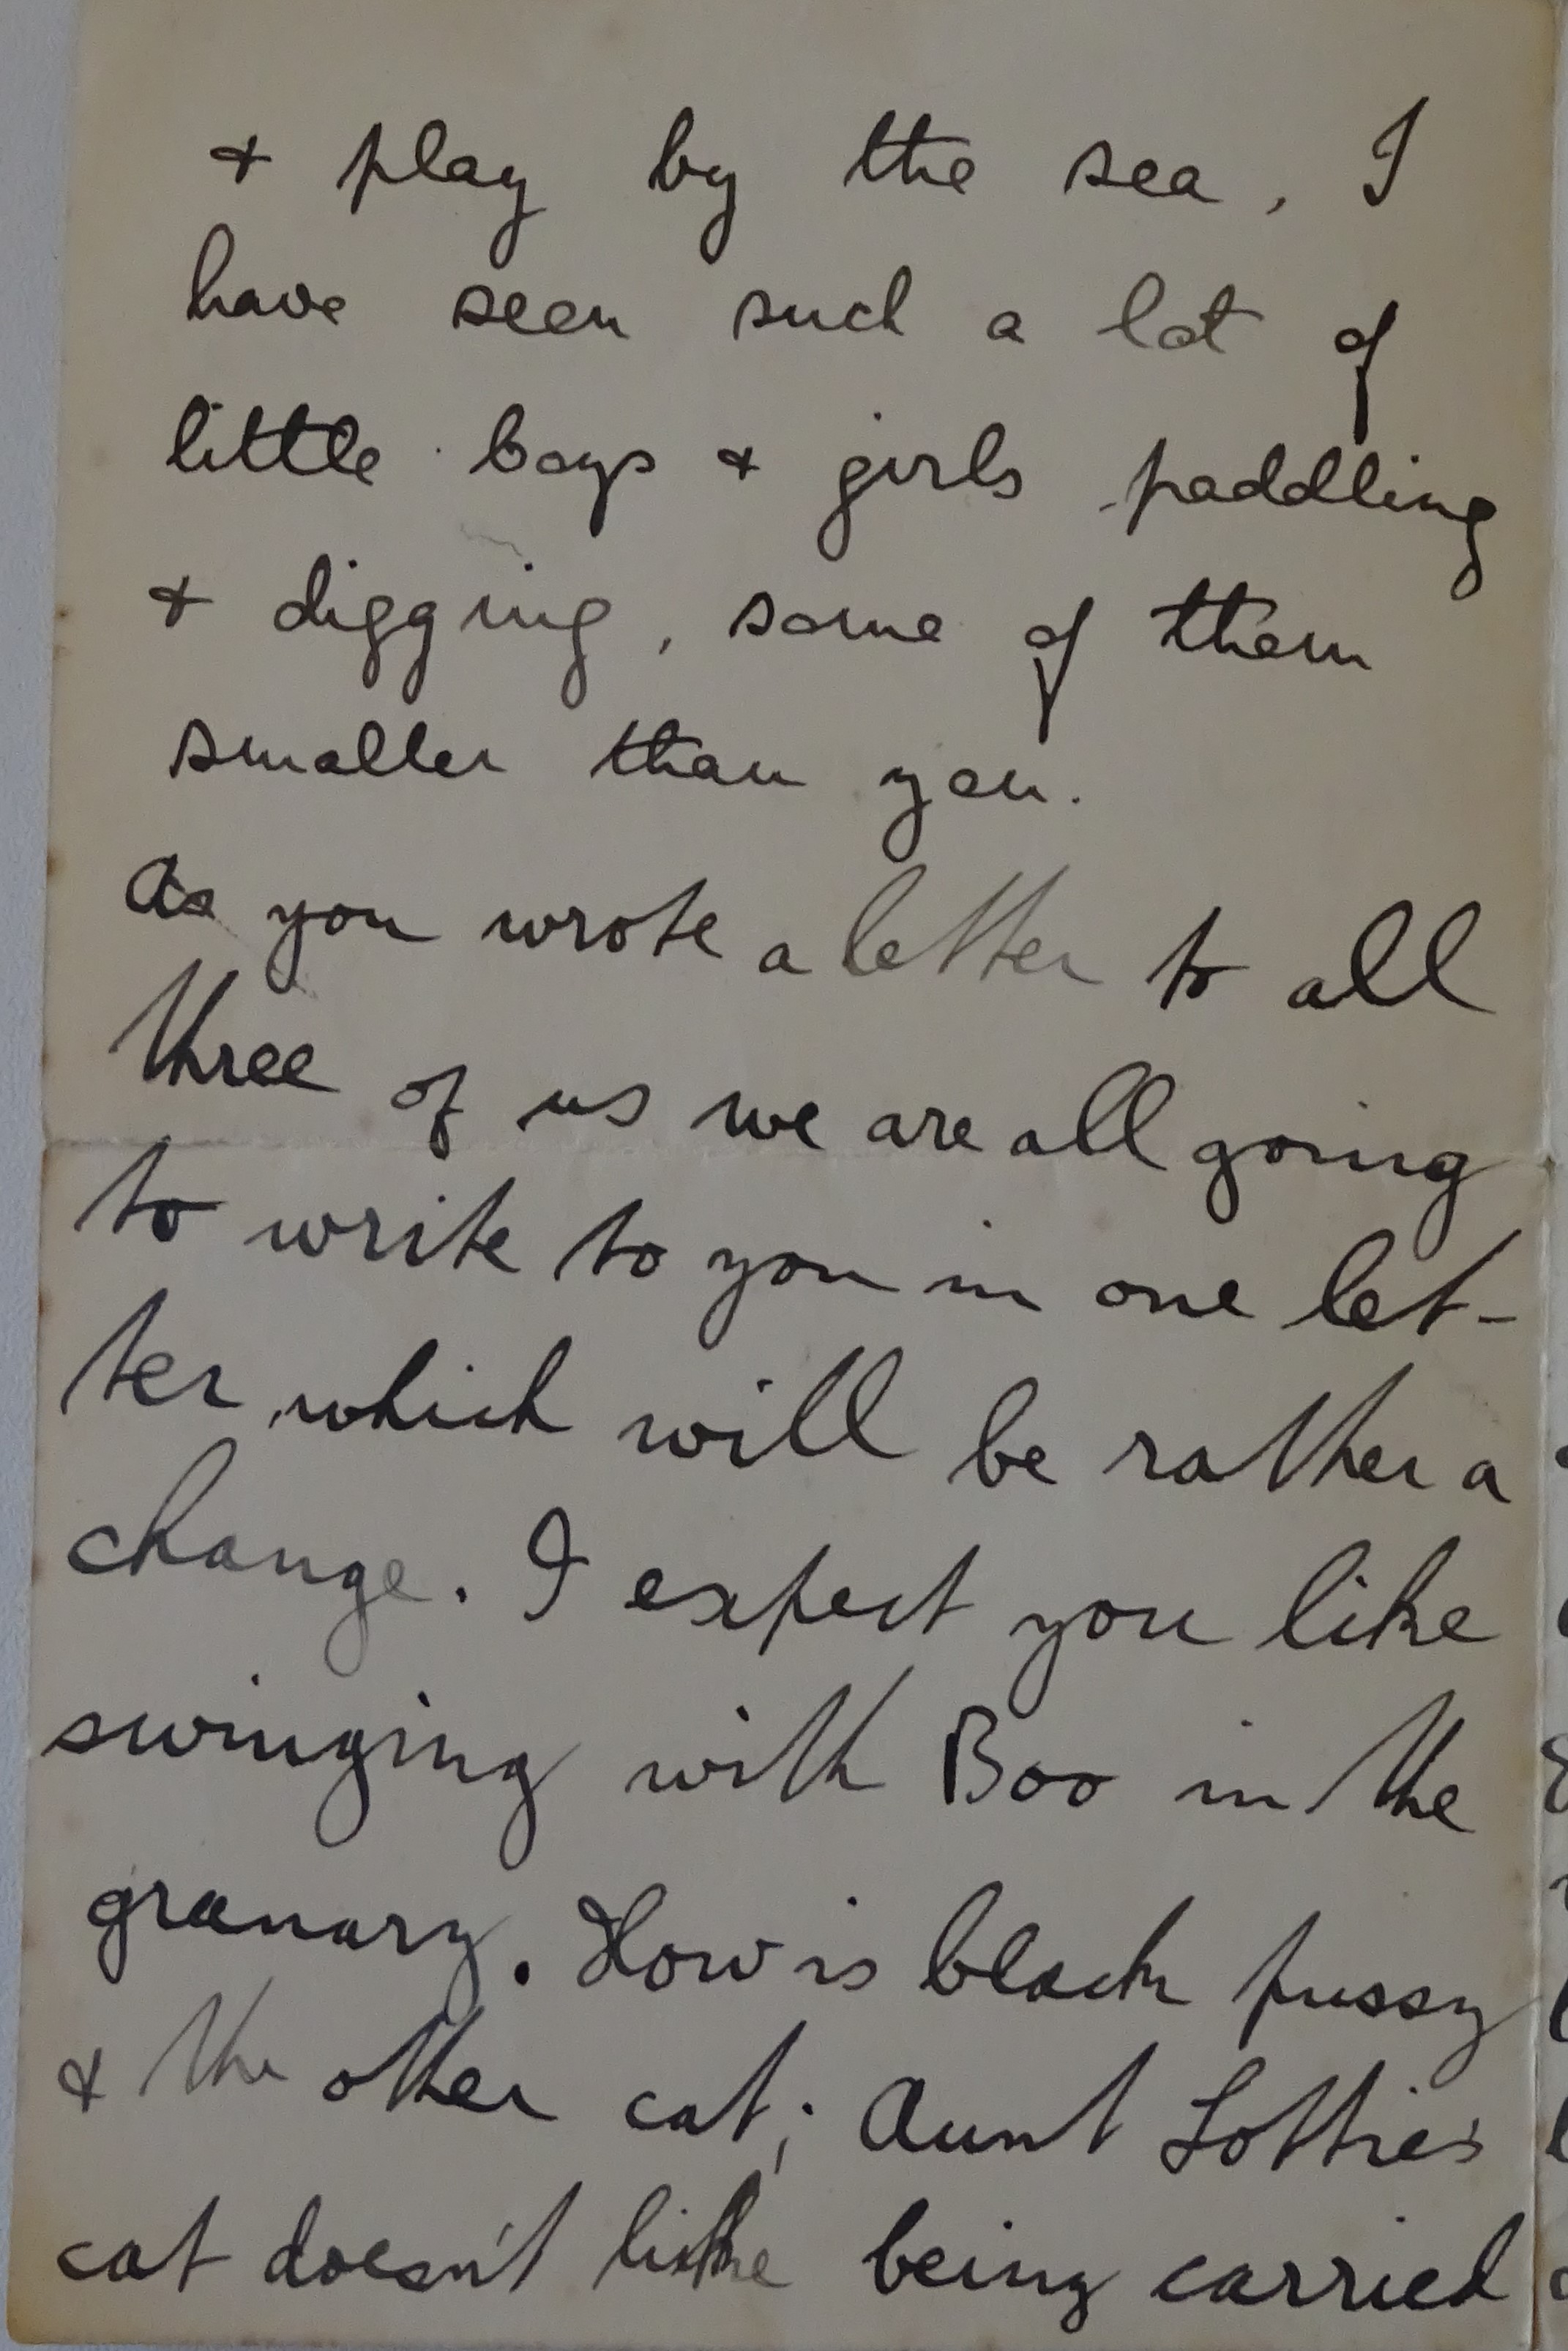 & play by the sea, I
have seen such a lot of
little boys & girls paddling
& digging, some of them
smaller than you.
As you wrote a letter to all
three of us we are all going
to write to you in one let-
ter, which will be rather a
change. I expect you like
swinging with Boo in the
granary. How is black pussy
& the other cat; Aunt Lottie's
cat doesn't like being carried